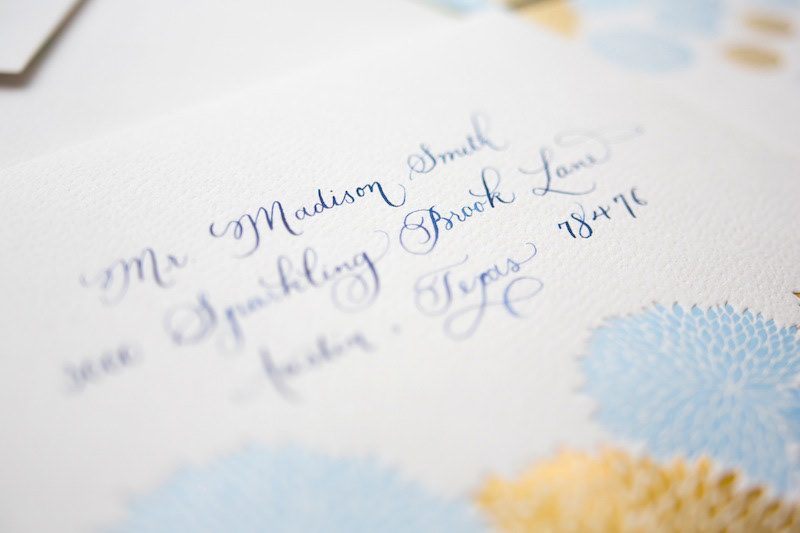 Mr Madison Smith
Sparkling Brook Lane
Austin, Texas 78476